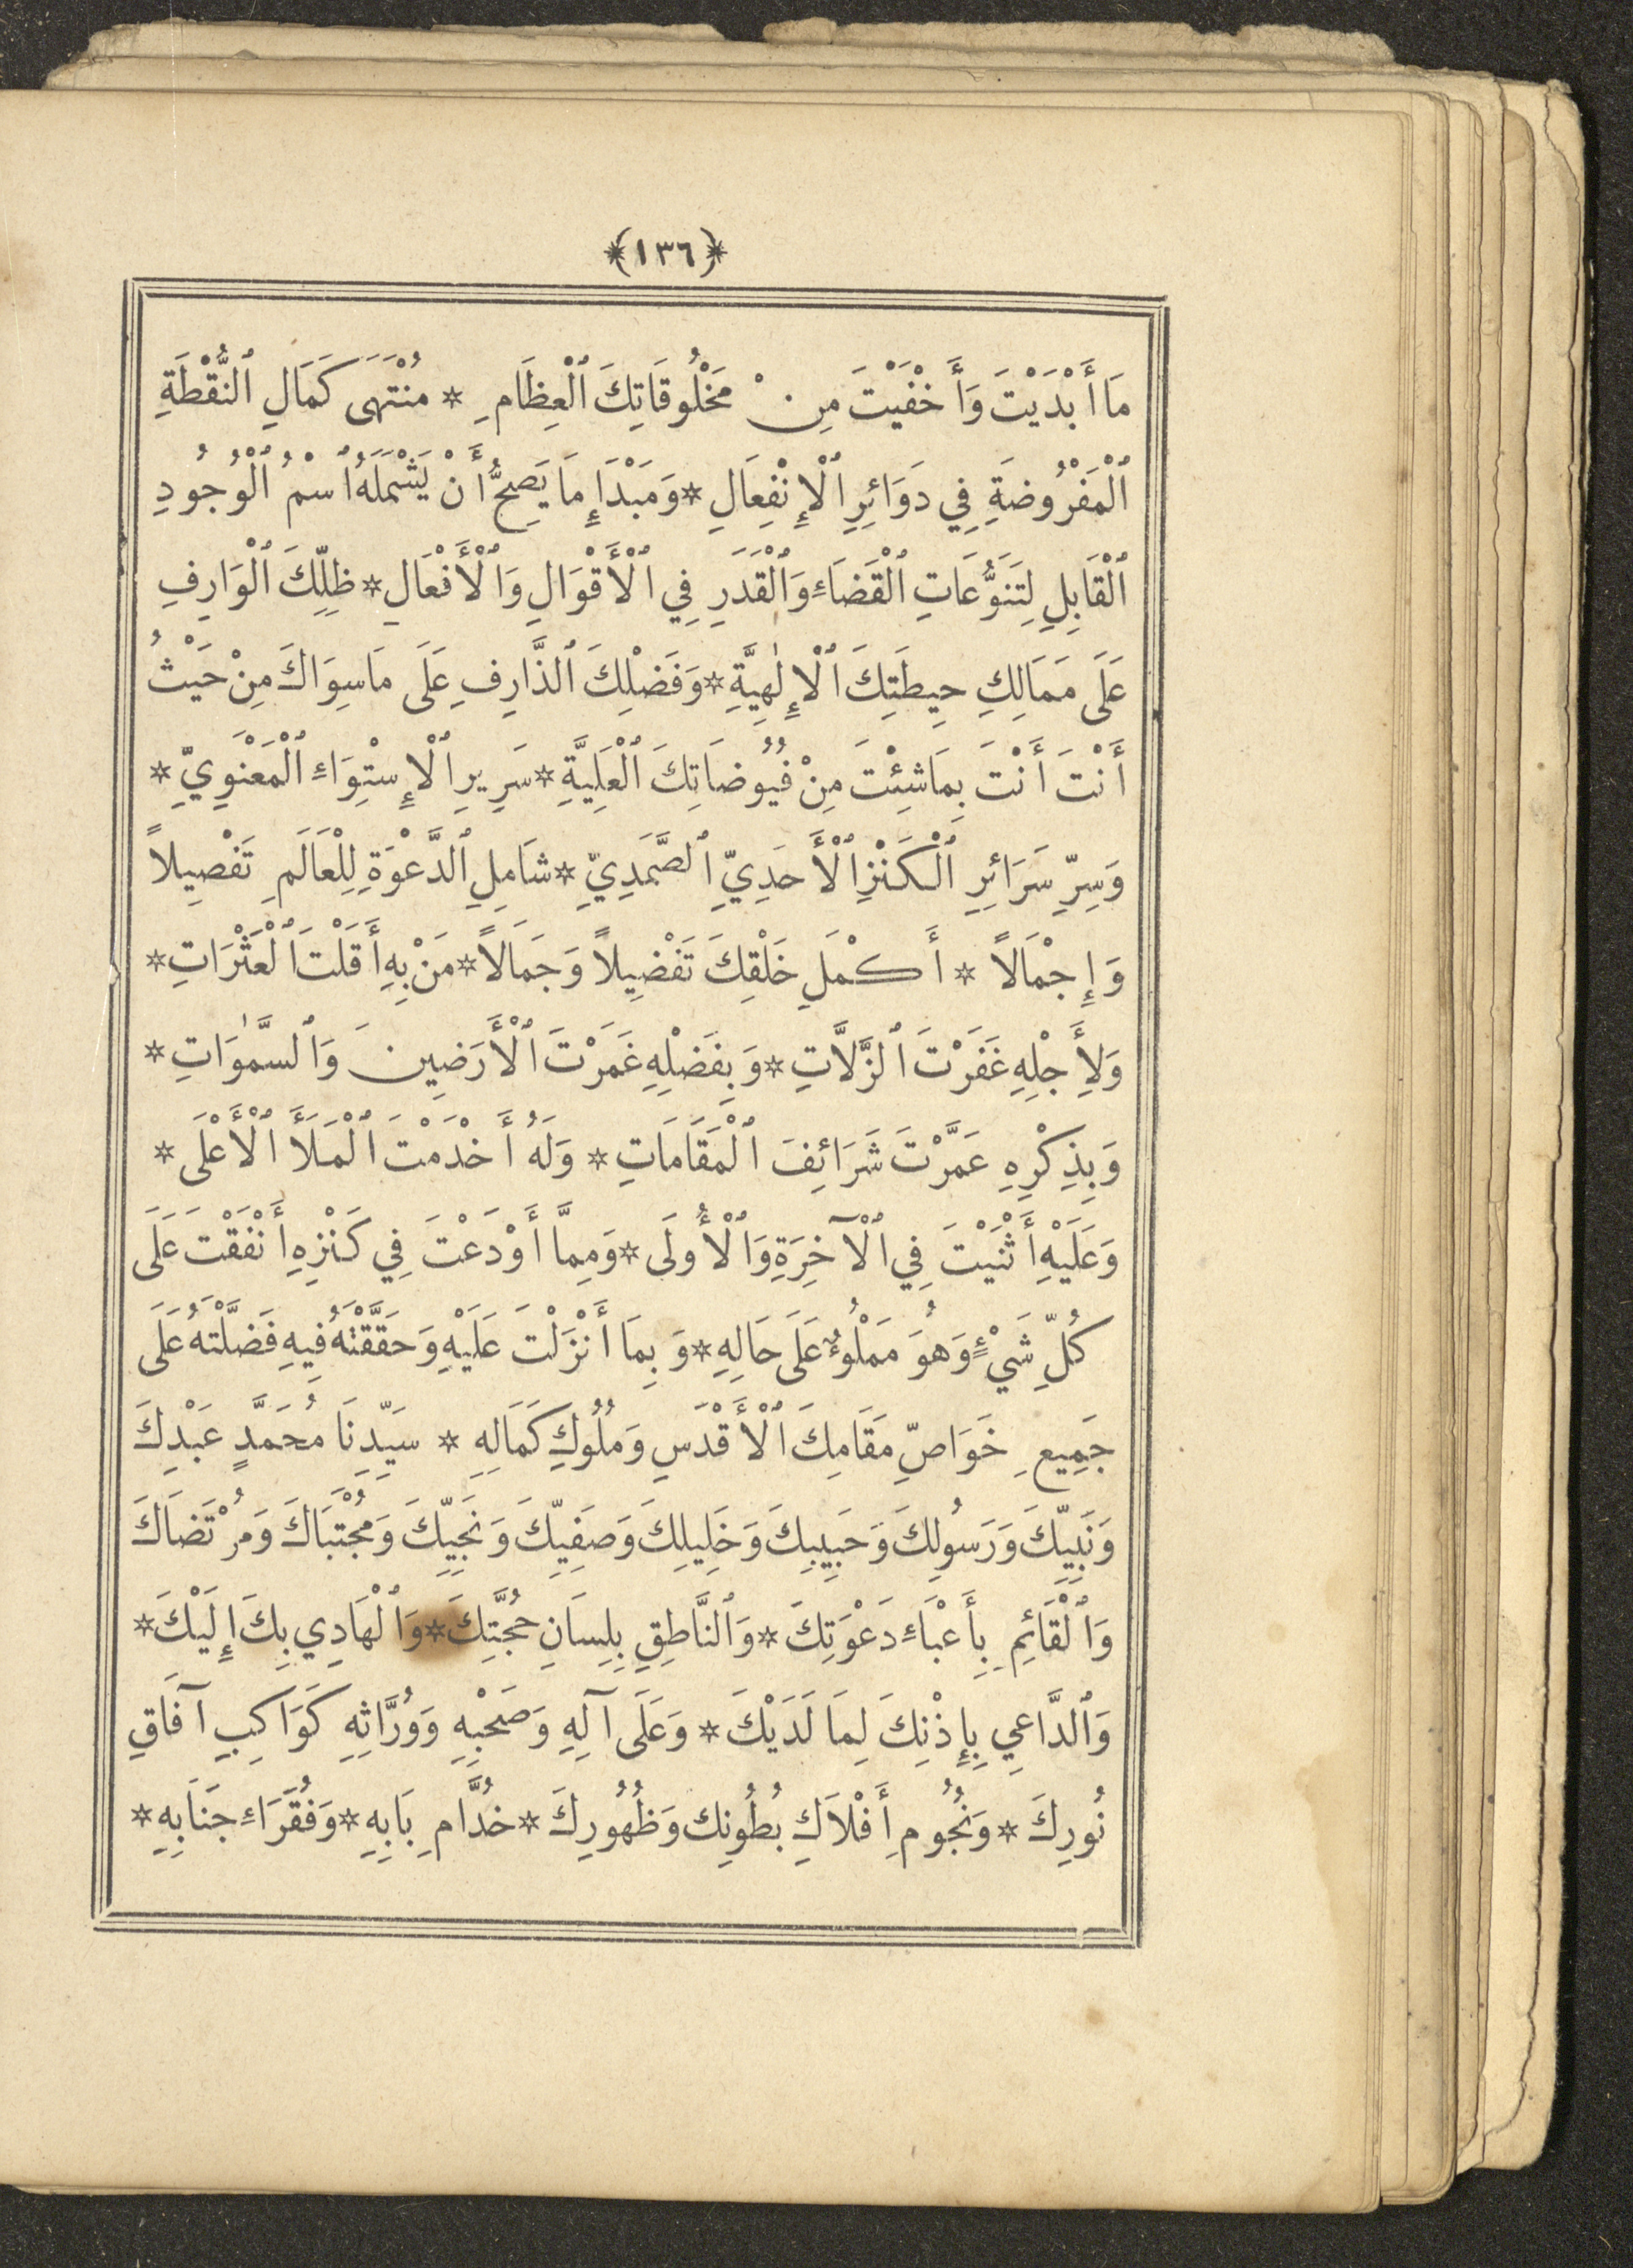 ﴿١٣٦﴾
مَا أَبْدَيْتَ وَأَخْفَيْتَ مِنْ مَخْلُوقَاتِكَ ٱلْعِظَامِ * مُنْتَهَى كَمَالِ ٱلنُّقْطَةِ
ٱلْمَفْرُوضَةِ فِي دَوَائِرِ ٱلْإِنْفِعَالِ * وَمَبْدَإِ مَا يَصِحُّ أَنْ يَشْمَلَهُ ٱسْمُ ٱلْوُجُودِ
ٱلْقَابِلِ لِتَنَوُّعَاتِ ٱلْقَضَاءِ وَٱلْقَدَرِ فِي ٱلْأَقْوَالِ وَٱلْأَفْعَالِ * ظِلِّكَ ٱلْوَارِفِ
عَلَى مَمَالِكِ حِيطَتِكَ ٱلْإِلٰهِيَّةِ * وَفَضْلِكَ ٱلذَّارِفِ عَلَى مَاسِوَاكَ مِنْ حَيْثُ
أَنْتَ أَنْتَ بِمَا شِئْتَ مِنْ فُيُوضَاتِكَ ٱلْعَلِيَّةِ * سَرِيرِ ٱلْإِسْتِوَاءِ ٱلْمَعْنَوِيِّ *
وَسِرِّ سَرَائِرِ ٱلْكَنْزِ ٱلْأَحَدِيِّ ٱلصَّمَدِيِّ * شَامِلِ ٱلدَّعْوَةِ لِلْعَالَمِ تَفْصِيلاً
وَإِجْمَالاً * أَكْمَلِ خَلْقِكَ تَفْضِيلاً وَجَمَالاً * مَنْ بِهِ أَقَلْتَ ٱلْعَثَرَاتِ *
وَلِأَجْلِهِ غَفَرْتَ ٱلزَّلَّاتِ * وَبِفَضْلِهِ غَمَرْتَ ٱلْأَرَضِينَ وَٱلسَّمٰوَاتِ *
وَبِذِكْرِهِ عَمَّرْتَ شَرَائِفَ ٱلْمَقَامَاتِ * وَلَهُ أَخْدَمْتَ ٱلْمَلَأَ ٱلْأَعْلَى *
وَعَلَيْهِ أَثْنَيْتَ فِي ٱلْآخِرَةِ وَٱلْأُولَى * وَمِمَّا أَوْدَعْتَ فِي كَنْزِهِ أَنْفَقْتَ عَلَى
كُلِّ شَيْءٍ وَهُوَ مَمْلُوءٌ عَلَى حَالِهِ * وَبِمَا أَنْزَلْتَ عَلَيْهِ وَحَقَّقْتَهُ فِيهِ فَضَّلْتَهُ عَلَى
جَمِيعِ خَوَاصِّ مَقَامِكَ ٱلْأَقْدَسِ وَمُلُوكِ كَمَالِهِ * سَيِّدِنَا مُحَمَّدٍ عَبْدِكَ
وَنَبِيِّكَ وَرَسُولِكَ وَحَبِيبِكَ وَخَلِيلِكَ وَصَفِيِّكَ وَنَجِيِّكَ وَمُجْتَبَاكَ وَمُرْتَضَاكَ
وَٱلْقَائِمِ بِأَعْبَاءِ دَعْوَتِكَ * وَٱلنَّاطِقِ بِلِسَانِ حُجَّتِكَ * وَٱلْهَادِي بِكَ إِلَيْكَ *
وَٱلدَّاعِي بِإِذْنِكَ لِمَا لَدَيْكَ * وَعَلَى آلِهِ وَصَحْبِهِ وَوُرَّاثِهِ كَوَاكِبِ آفَاقِ
نُورِكَ * وَنُجُومِ أَفْلَاكِ بُطُونِكَ وَظُهُورِكَ * خُدَّامِ بَابِهِ * وَفُقَرَاءِ جَنَابِهِ *